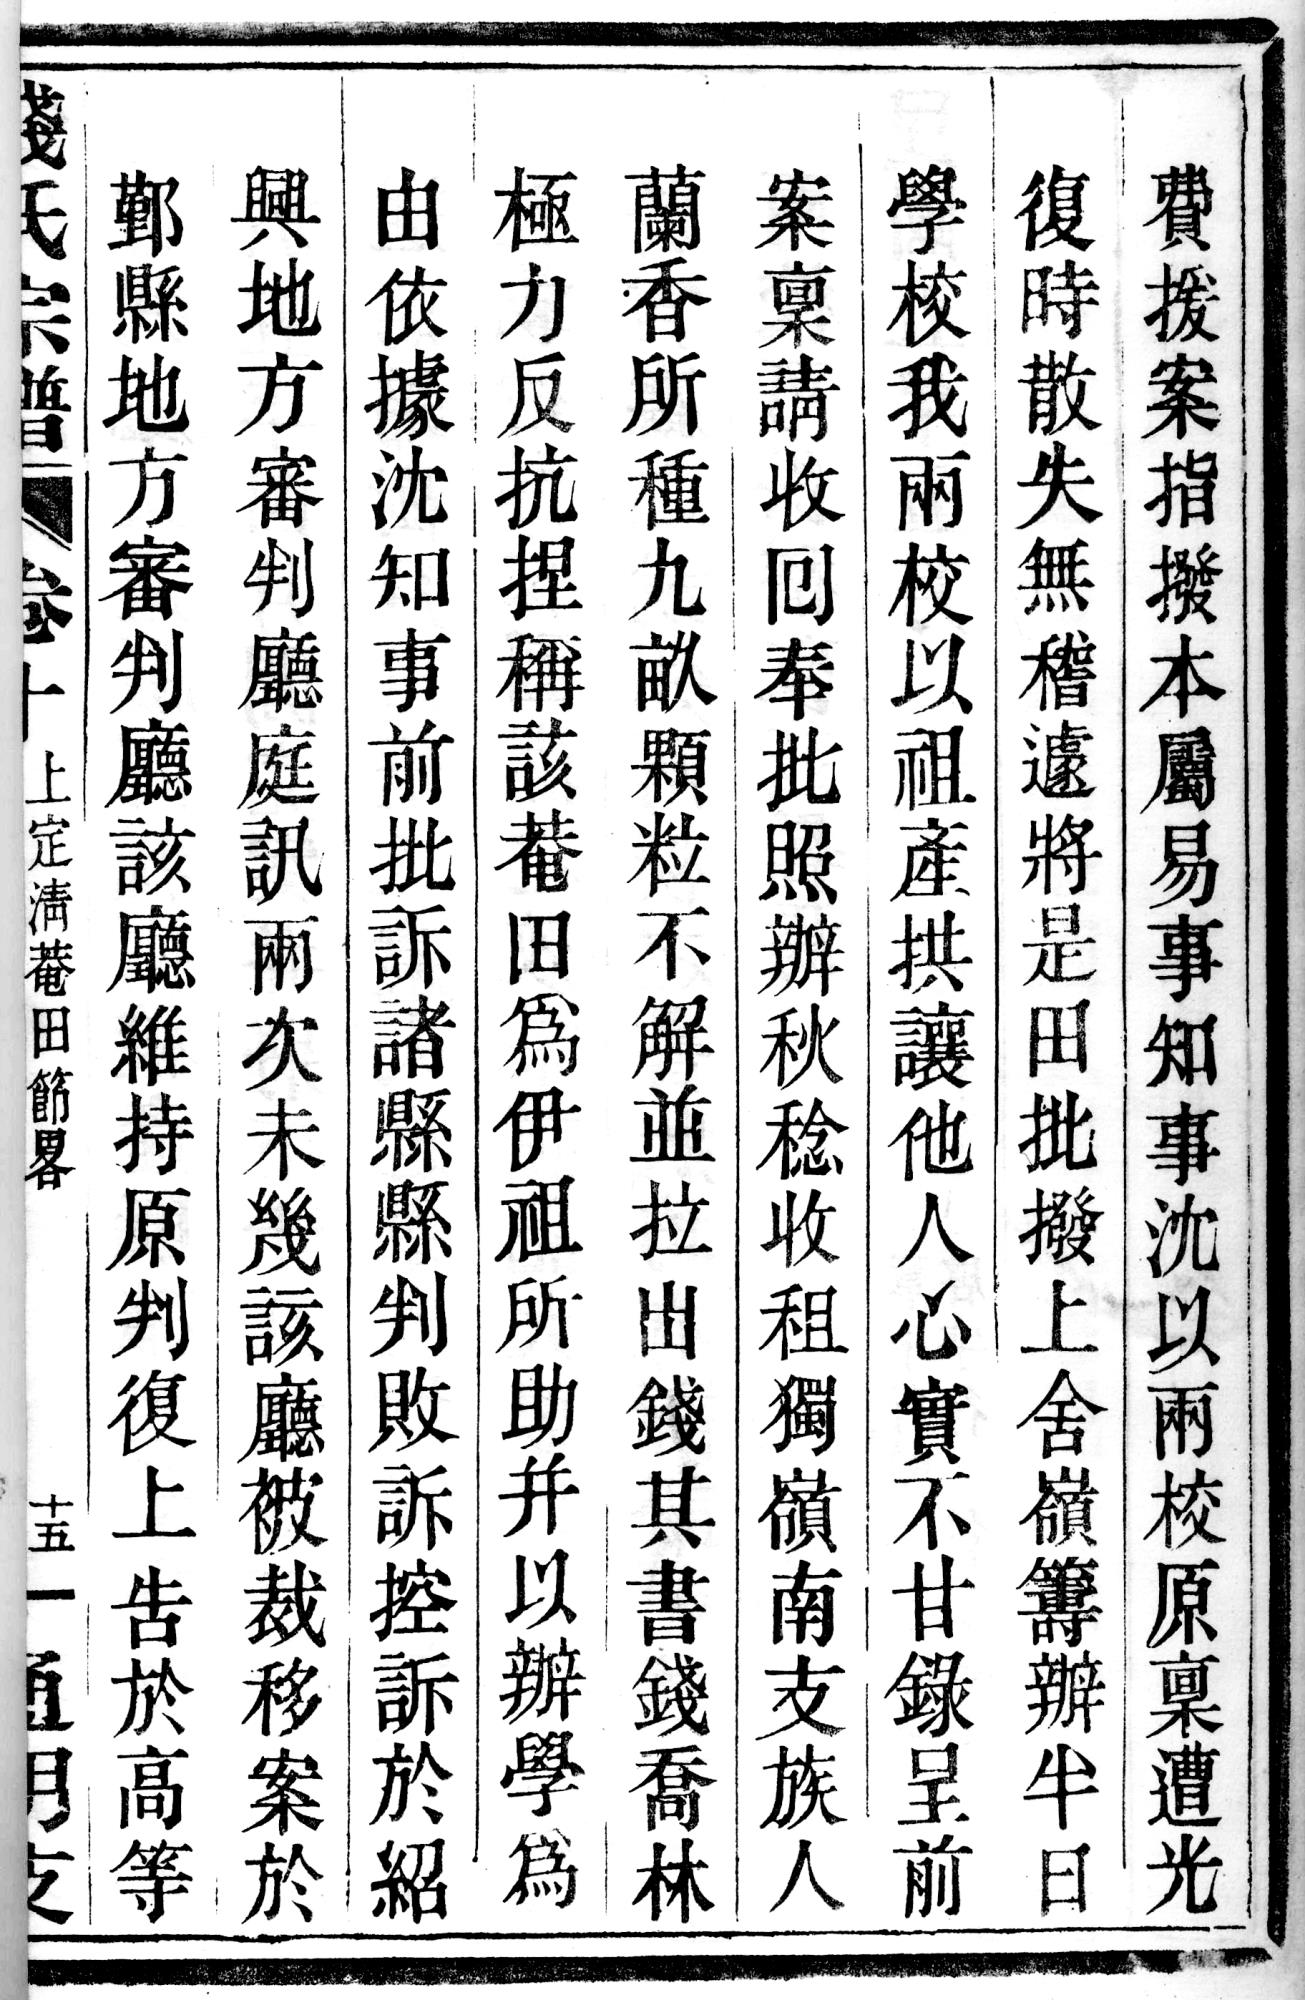 費援案指撥本屬易事知事沈以兩校原稟遭光
復時散失無稽遽將是田批撥上舍嶺籌辦半日
學校我兩校以祖產拱讓他人心實不甘錄呈前
案稟請收回奉批照辦秋稔收租獨嶺南支族人
蘭香所種九畝顆粒不解並拉出錢其書錢喬林
極力反抗捏稱該菴田為伊祖所助并以辦學為
由依據沈知事前批訴諸縣縣判敗訴控訴於紹
興地方審判廳庭訊兩次未幾該廳被裁移案於
鄞縣地方審判廳該廳維持原判復上告於高等
錢氏宗譜 卷十 上定淸菴田節畧 十五 通明支